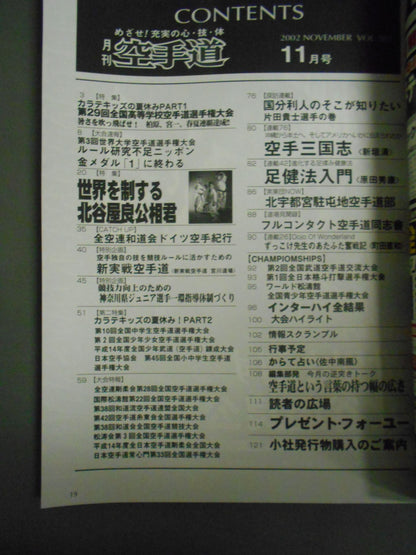 CONTENTS
めざせ!充実の心・技・体
月刊 空手道
2002 NOVEMBER VOL.
11月号
3 【特集】
カラテキッズの夏休みPART1
第29回全国高等学校空手道選手権大会
暑さを吹っ飛ばせ! 柏原、宮一、春夏連覇達成!!
8 【大会速報】
第3回世界大学空手道選手権大会
ルール研究不足ニッポン
金メダル「1」に終わる
20 【特集】
世界を制する
北谷屋良公相君
35 【CATCH UP】
全空連和道会ドイツ空手紀行
40 【特別企画】
空手独自の技を競技ルールに活かすための
新実戦空手道 (新実戦空手道 宮川道場)
45 【特別企画】
競技力向上のための
神奈川県ジュニア選手一環指導体制づくり
51 【第二特集】
カラテキッズの夏休み!PART2
第10回全国中学生空手道選手権大会
第2回全国少年少女空手道選手権大会
平成14年度全国少年武道(空手道)錬成大会
日本空手協会 第45回全国小中学生空手道
選手権大会
59 【大会特報】
全空連剛柔会第28回全国空手道選手権大会
国際松濤館第22回全国空手道選手権大会
第38回和道流空手道連盟全国大会
第42回空手道糸東会全国選手権大会
第38回和道会全国空手道競技大会
松涛会第3回全国空手道選手権大会
平成14年度全日本空手道剛柔会全国大会
日本空手道常心門第33回全国空手道選手権大会
76 【探訪連載】
国分利人のそこが知りたい
片田貴士選手の巻
80 【連載76】
空手三国志 (新垣清)
82 【連載42】進化する足揉み健康法
足健法入門 (原田秀康)
86 【実業団NOW】
北宇都宮駐屯地空手道部
88 【道場見聞録】
フルコンタクト空手道同志会
90 【連載26】Dojo Of Wonderland
ずっこけ先生のあたふた奮戦記
【CHAMPIOMSHIPS】
92 第2回全国武道空手道交流大会
94 第1回全日本格斗打撃選手権大会
95 ワールド松濤館
全国青少年空手道選手権大会
98 インターハイ全結果
100 大会ハイライト
102 情報スクランブル
105 行事予定
106 からて占い(佐中南風)
108 編集部発 今月の逆突きトーク
空手道という言葉の持つ幅の広さ
111 読者の広場
114 プレゼント・フォーユー
121 小社発行物購入のご案内
19